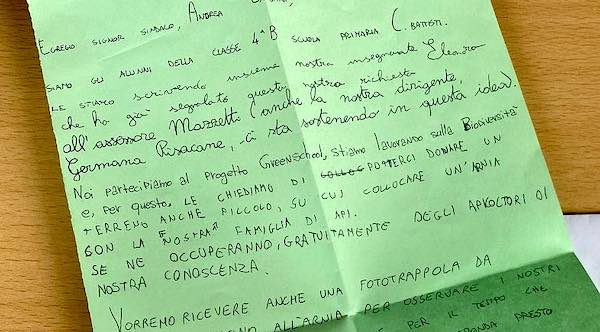 Egregio signor sindaco, Andrea
siamo gli alunni della classe 4ª B scuola primaria C. Battisti.
Le stiamo scrivendo insieme nostra insegnante Eleonora
che ha già segnalato questa nostra richiesta
all'assessore Mazzetto (anche la nostra dirigente,
Germana Pisacane, ci sta sostenendo in questa idea).
Noi partecipiamo al progetto GreenSchool, stiamo lavorando sulla Biodiversità
e, per questo, LE CHIEDIAMO DI POTERCI DONARE UN
TERRENO ANCHE PICCOLO, SU CUI COLLOCARE UN'ARNIA
CON LA "NOSTRA" FAMIGLIA DI API.
SE NE OCCUPERANNO, GRATUITAMENTE DEGLI APICOLTORI DI
NOSTRA CONOSCENZA.
VORREMO RICEVERE ANCHE UNA FOTOTRAPPOLA DA
ALL'ARNIA PER OSSERVARE I NOSTRI
E PER IL TEMPO CHE
PRESTO